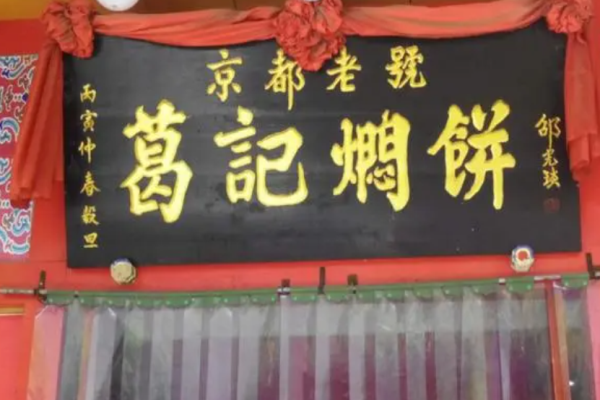 京都老號
葛記燜餅
丙寅仲春穀旦